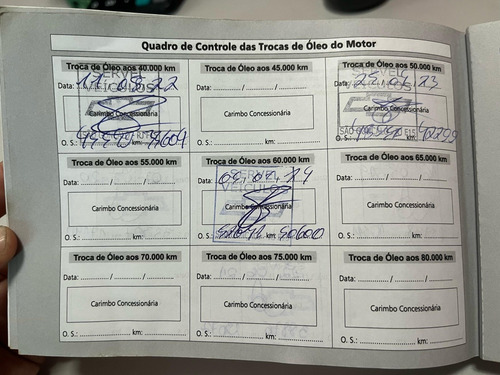 Quadro de Controle das Trocas de Óleo do Motor
Troca de Óleo aos 40.000 km
Data:
Carimbo Concessionária
O. S.: km:
Troca de Óleo aos 45.000 km
Data: ........... / ........... / ...........
Carimbo Concessionária
O. S.: ........................ km: ................
Troca de Óleo aos 50.000 km
Data:
Carimbo Concessionária
O. S.:
Troca de Óleo aos 55.000 km
Data: ........... / ........... / ...........
Carimbo Concessionária
O. S.: ........................ km: ................
Troca de Óleo aos 60.000 km
Data:
Carimbo Concessionária
O. S.: 50600
Troca de Óleo aos 65.000 km
Data: ........... / ........... / ...........
Carimbo Concessionária
O. S.: ........................ km: ................
Troca de Óleo aos 70.000 km
Data: ........... / ........... / ...........
Carimbo Concessionária
O. S.: ........................ km: ................
Troca de Óleo aos 75.000 km
Data: ........... / ........... / ...........
Carimbo Concessionária
O. S.: ........................ km: ................
Troca de Óleo aos 80.000 km
Data: ........... / ........... / ...........
Carimbo Concessionária
O. S.: ........................ km: ................